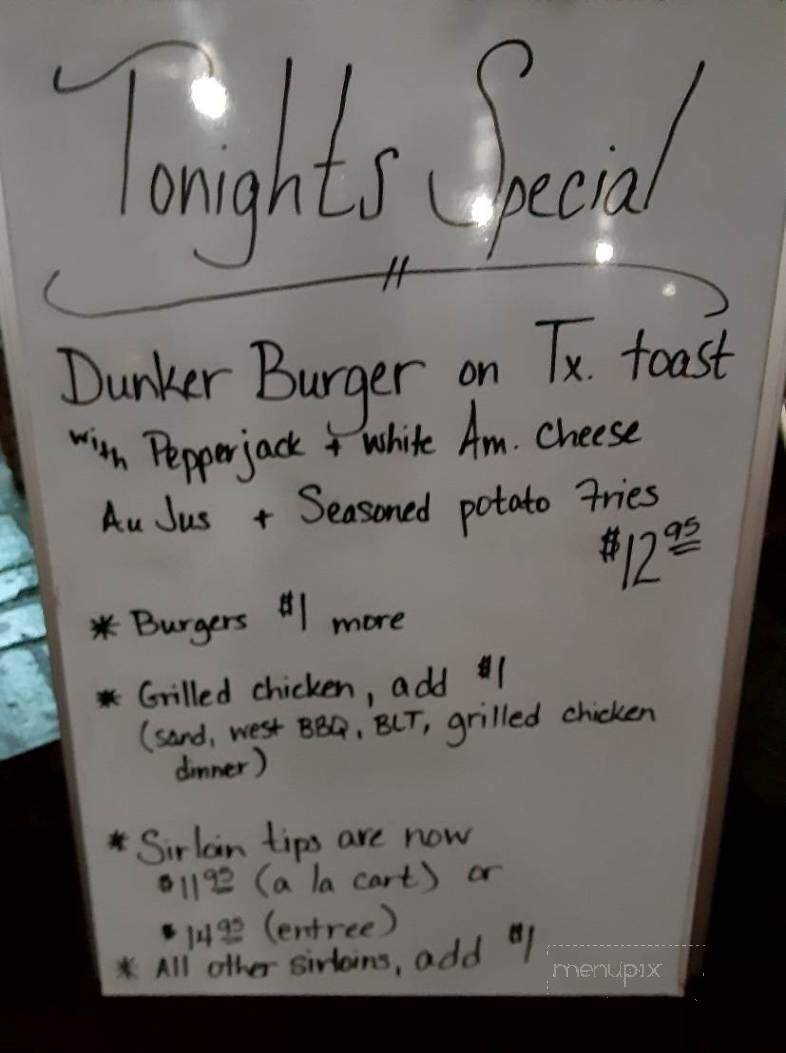 Tonights Special
Dunker Burger on Tx. toast
with Pepperjack + white Am. cheese
Au Jus + Seasoned potato Fries
$12.95
* Burgers $1 more
* Grilled chicken, add $1
(sand, west BBQ, BLT, grilled chicken
dinner)
* Sirloin tips are now
$11.95 (a la cart) or
$14.95 (entree)
* All other sirloins, add $1
menupix